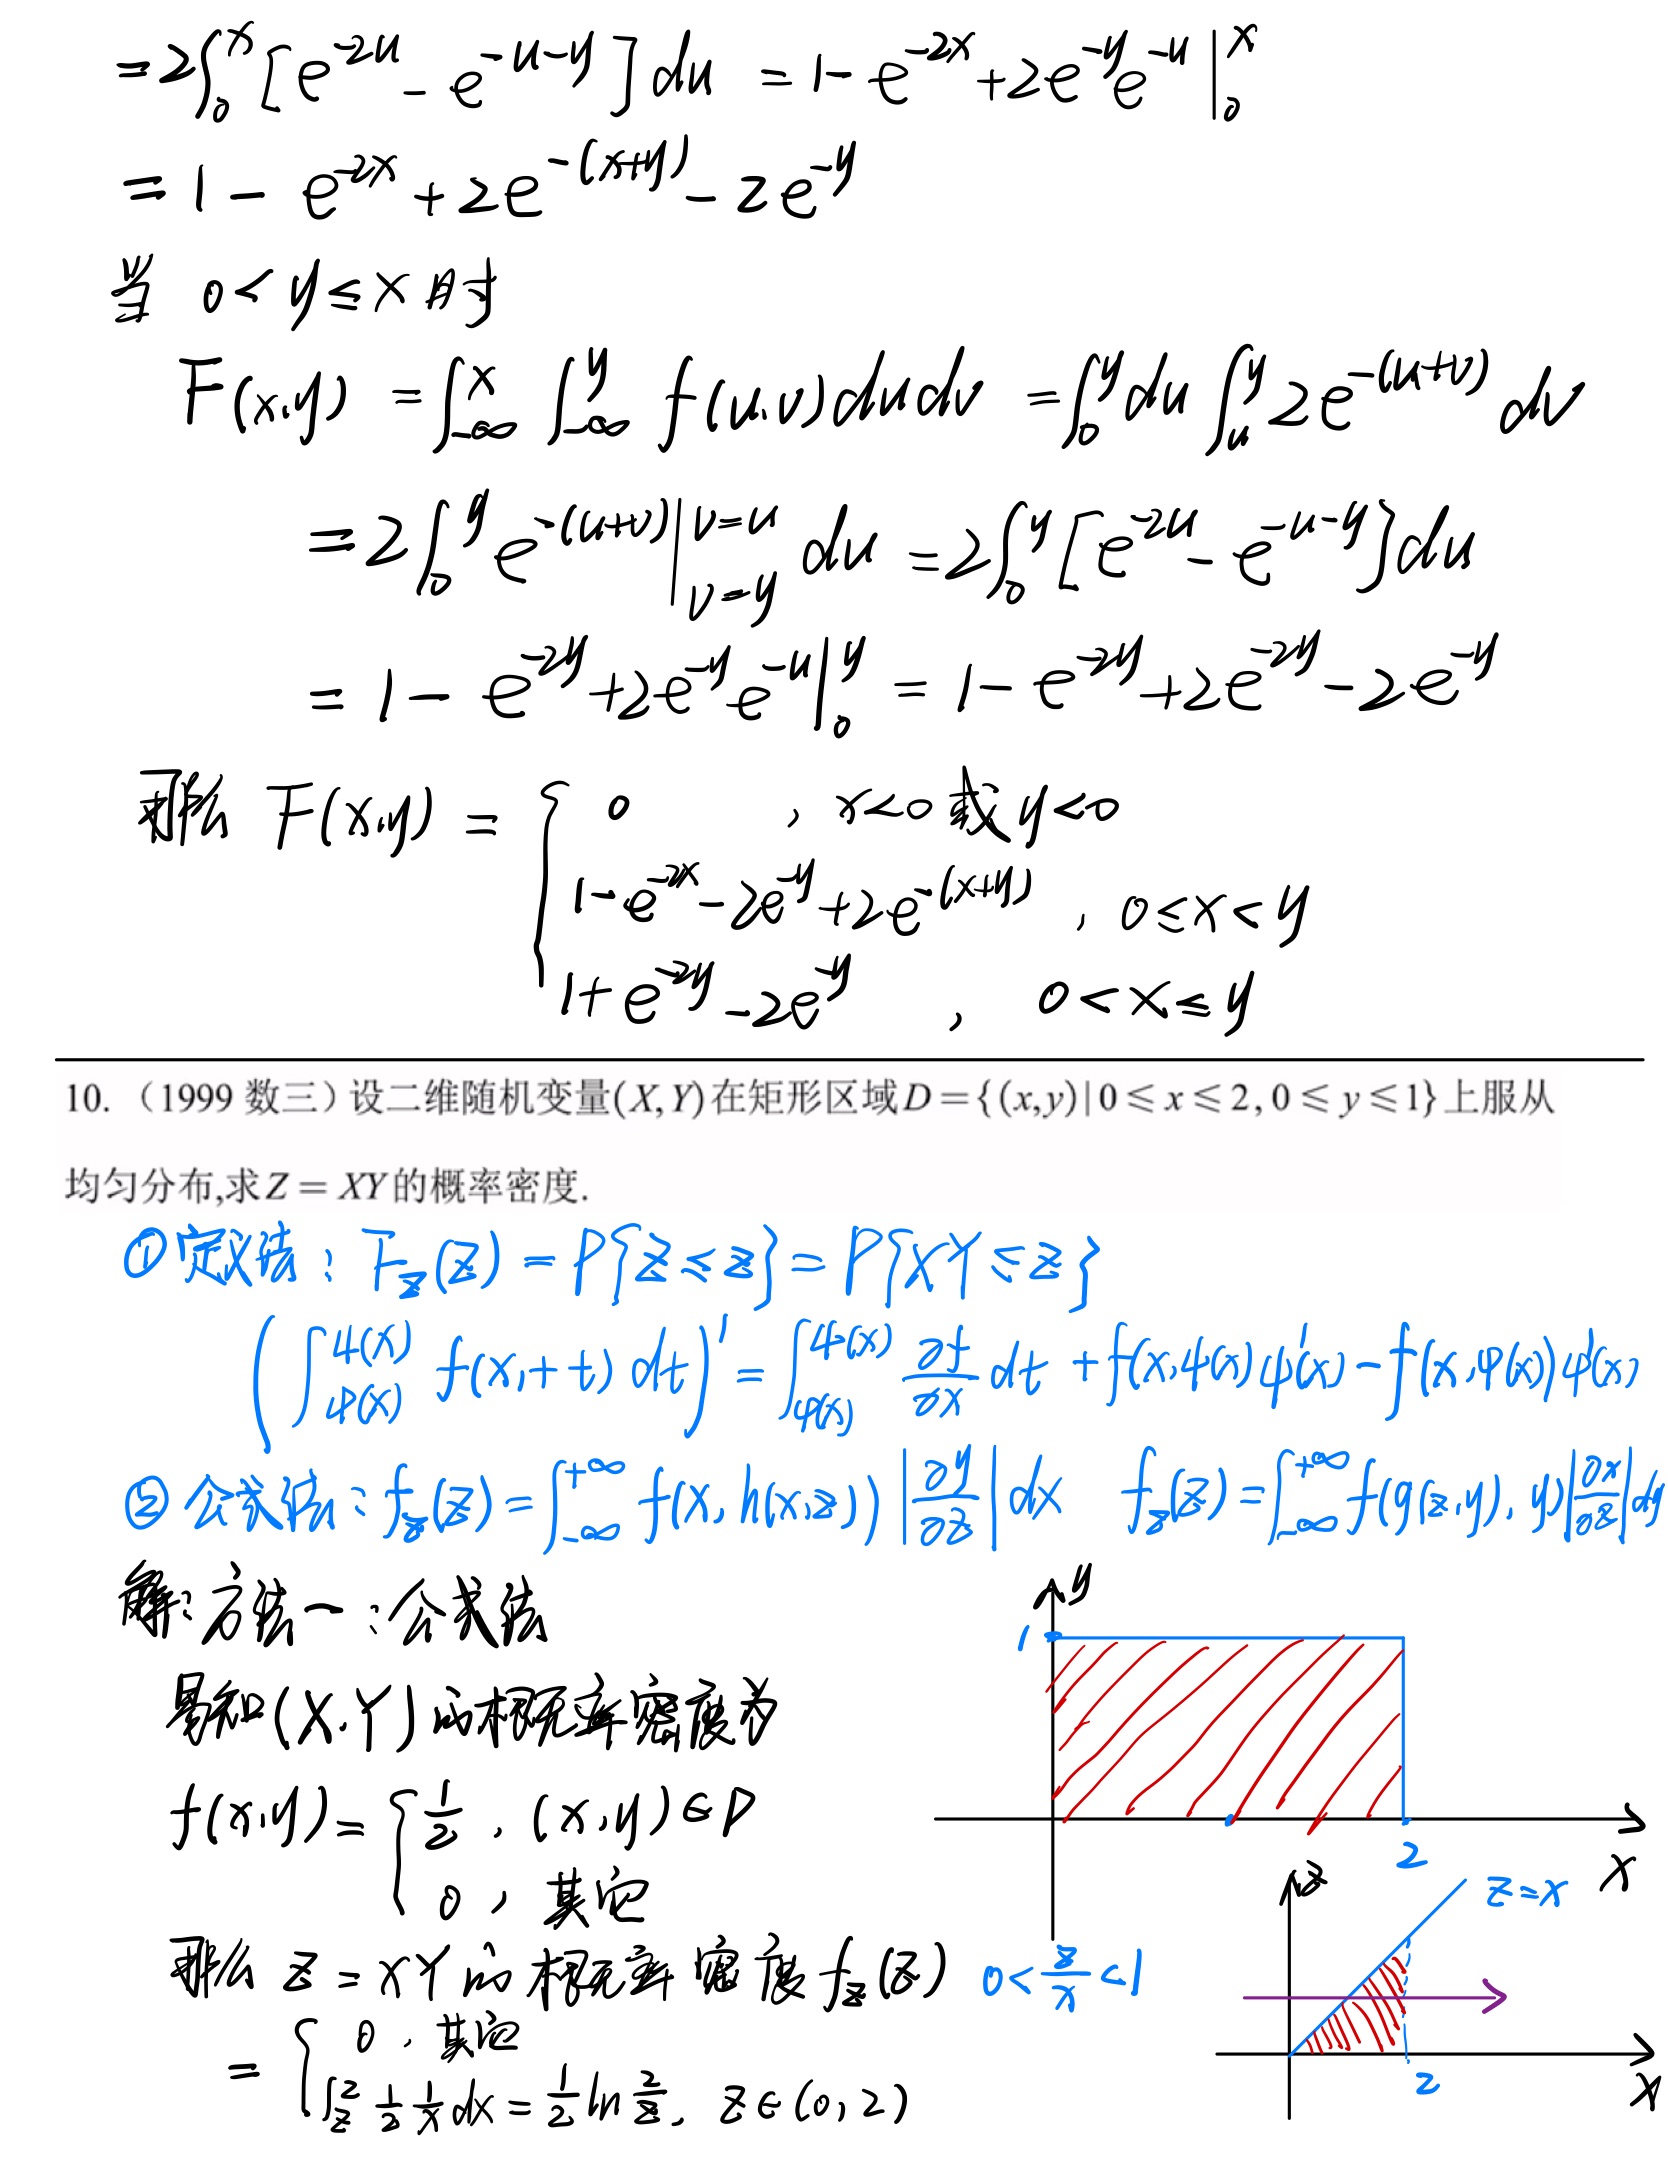 =2∫₀ˣ[e^{-2u} - e^{-u-y}]du = 1 - e^{-2x} + 2e^{-y}e^{-u}|₀ˣ
= 1 - e^{-2x} + 2e^{-(x+y)} - 2e^{-y}
当 0<y≤x时
F(x,y) = ∫_{-∞}^{x}∫_{-∞}^{y} f(u,v)dudv = ∫₀^{y}du∫_{u}^{y}2e^{-(u+v)}dv
= 2∫₀^{y} e^{-(u+v)}|_{v=y}^{v=u} du = 2∫₀^{y}[e^{-2u} - e^{-u-y}]du
= 1 - e^{-2y} + 2e^{-y}e^{-u}|₀^{y} = 1 - e^{-2y} + 2e^{-2y} - 2e^{-y}
那么 F(x,y) = { 0 , x<0或y<0
1 - e^{-2x} - 2e^{-y} + 2e^{-(x+y)} , 0≤x<y
1 + e^{-2y} - 2e^{-y} , 0<x≤y
10. （1999 数三）设二维随机变量(X,Y)在矩形区域D={(x,y)|0≤x≤2,0≤y≤1}上服从
均匀分布,求Z=XY的概率密度.
①定义法: F_Z(Z) = P{Z≤z} = P{XY≤z}
(∫_{φ(x)}^{ψ(x)} f(x,+t)dt)' = ∫_{φ(x)}^{ψ(x)} ∂f/∂x dt + f(x,ψ(x))ψ'(x) - f(x,φ(x))φ'(x)
②公式法: f_Z(z) = ∫_{-∞}^{+∞} f(x,h(x,z))|∂y/∂z|dx f_Z(z) = ∫_{-∞}^{+∞} f(g(z,y),y)|∂x/∂z|dy
解: 方法一: 公式法
易知(X,Y)的概率密度为
f(x,y) = { 1/2 , (x,y)∈D
0 , 其它
那么 Z=XY的概率密度f_Z(z) 0<z/x<1
= { 0 , 其它
∫_{z}^{2} 1/2 1/x dx = 1/2 ln 2/z , z∈(0,2)
y
1
2
x
z
z=x
2
x